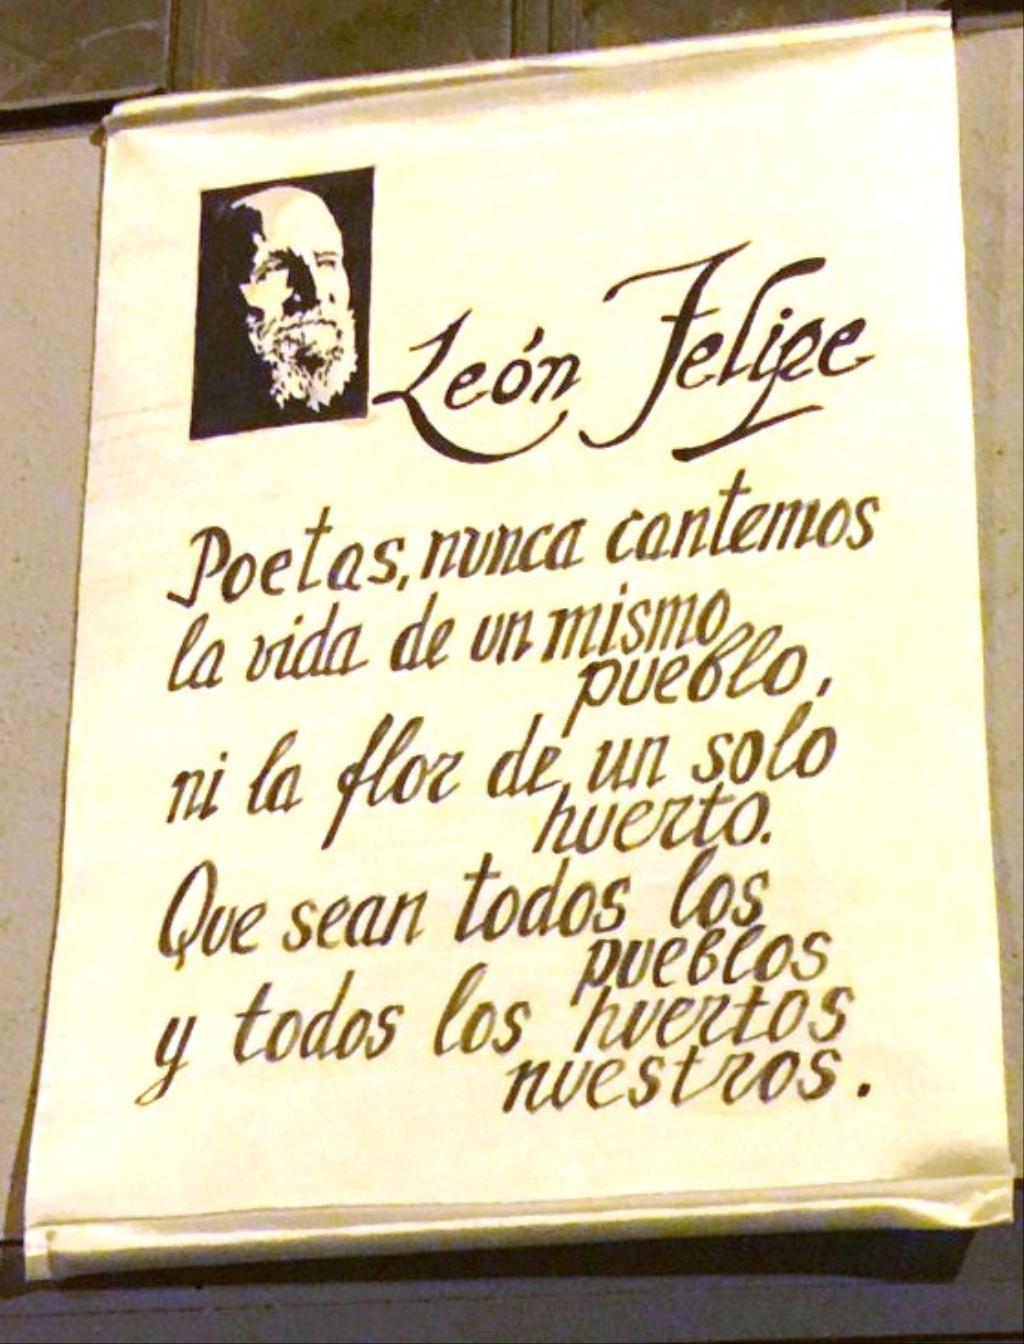 León Felipe
Poetas, nunca cantemos
la vida de un mismo
pueblo,
ni la flor de un solo
huerto.
Que sean todos los
pueblos
y todos los huertos
nuestros.